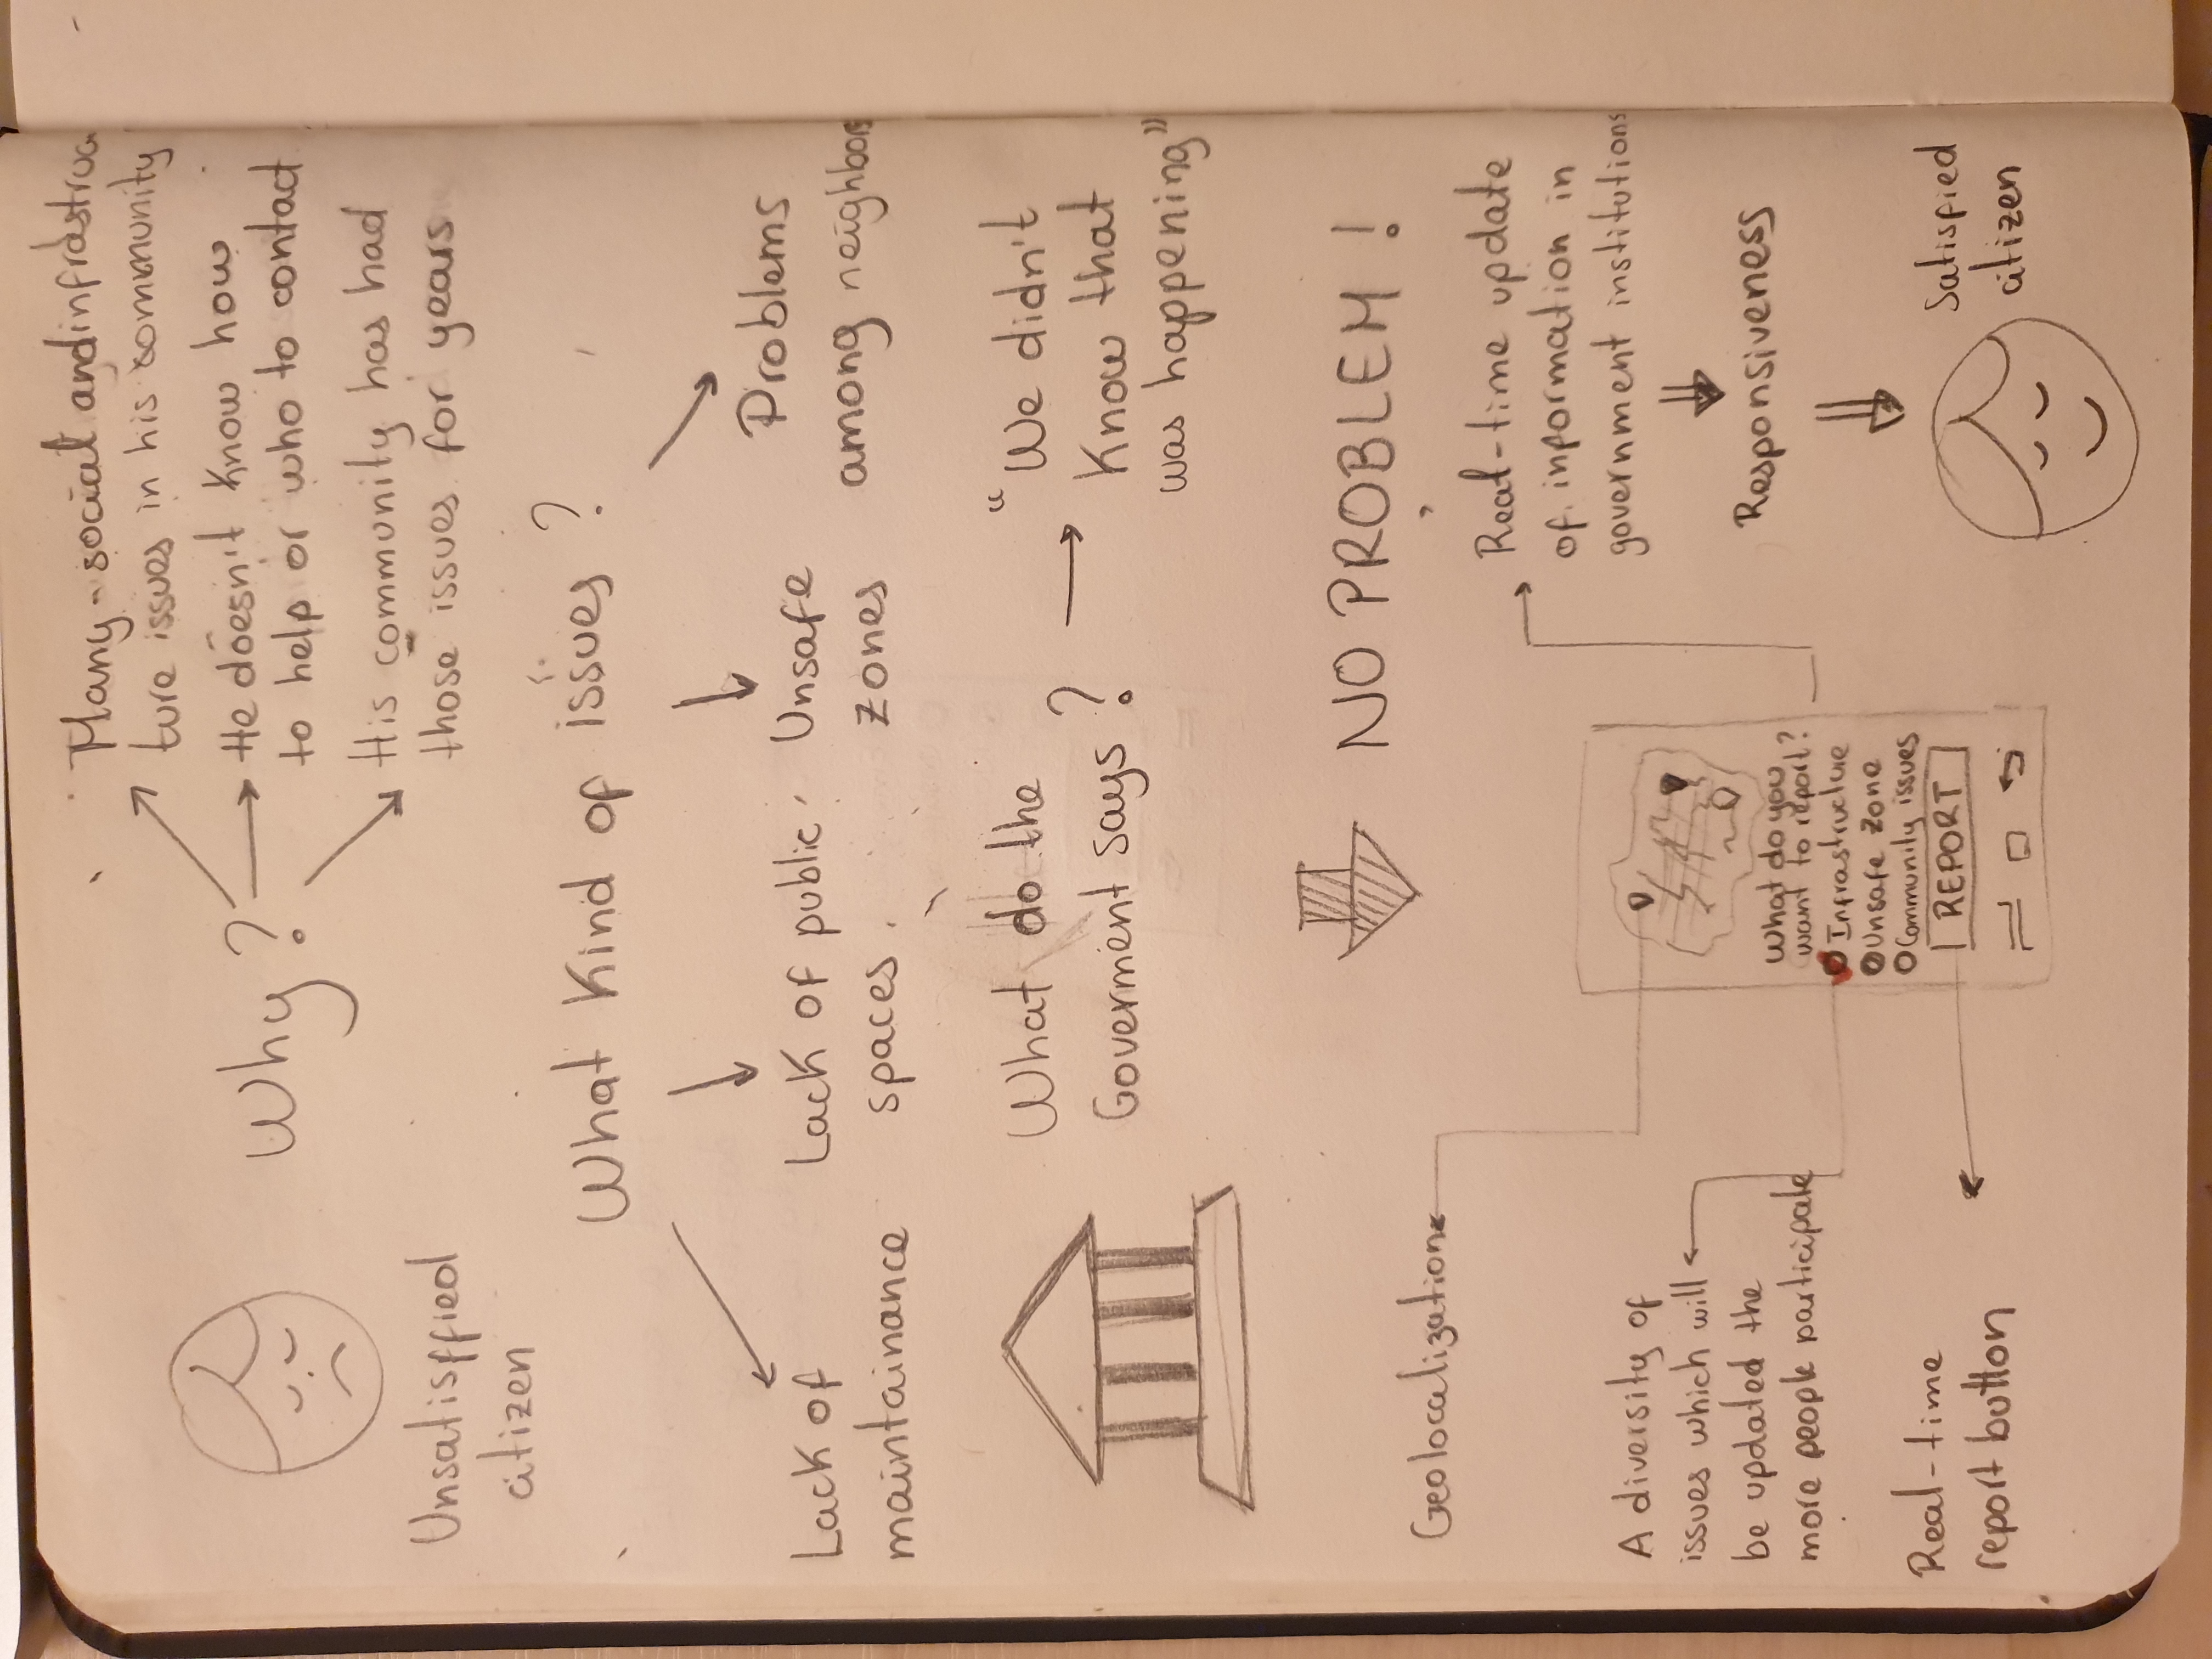 Unsatisffied
citizen
Why?
Many social and infrastruc
ture issues in his community
He doesn't Know how
to help or who to contact
His community has had
those issues for years
What Kind of issues?
Lack of
maintainance
Lack of public
spaces
Unsafe
zones
Problems
among neighbors
What do the
Government says?
"We didn't
Know that
was happening"
NO PROBLEM!
Geolocalization
A diversity of
issues which will
be updated the
more people participate
Real-time
report button
What do you
want to report?
Infrastructure
Unsafe zone
Community issues
REPORT
Real-time update
of information in
government institutions
Responsiveness
Satisfied
citizen